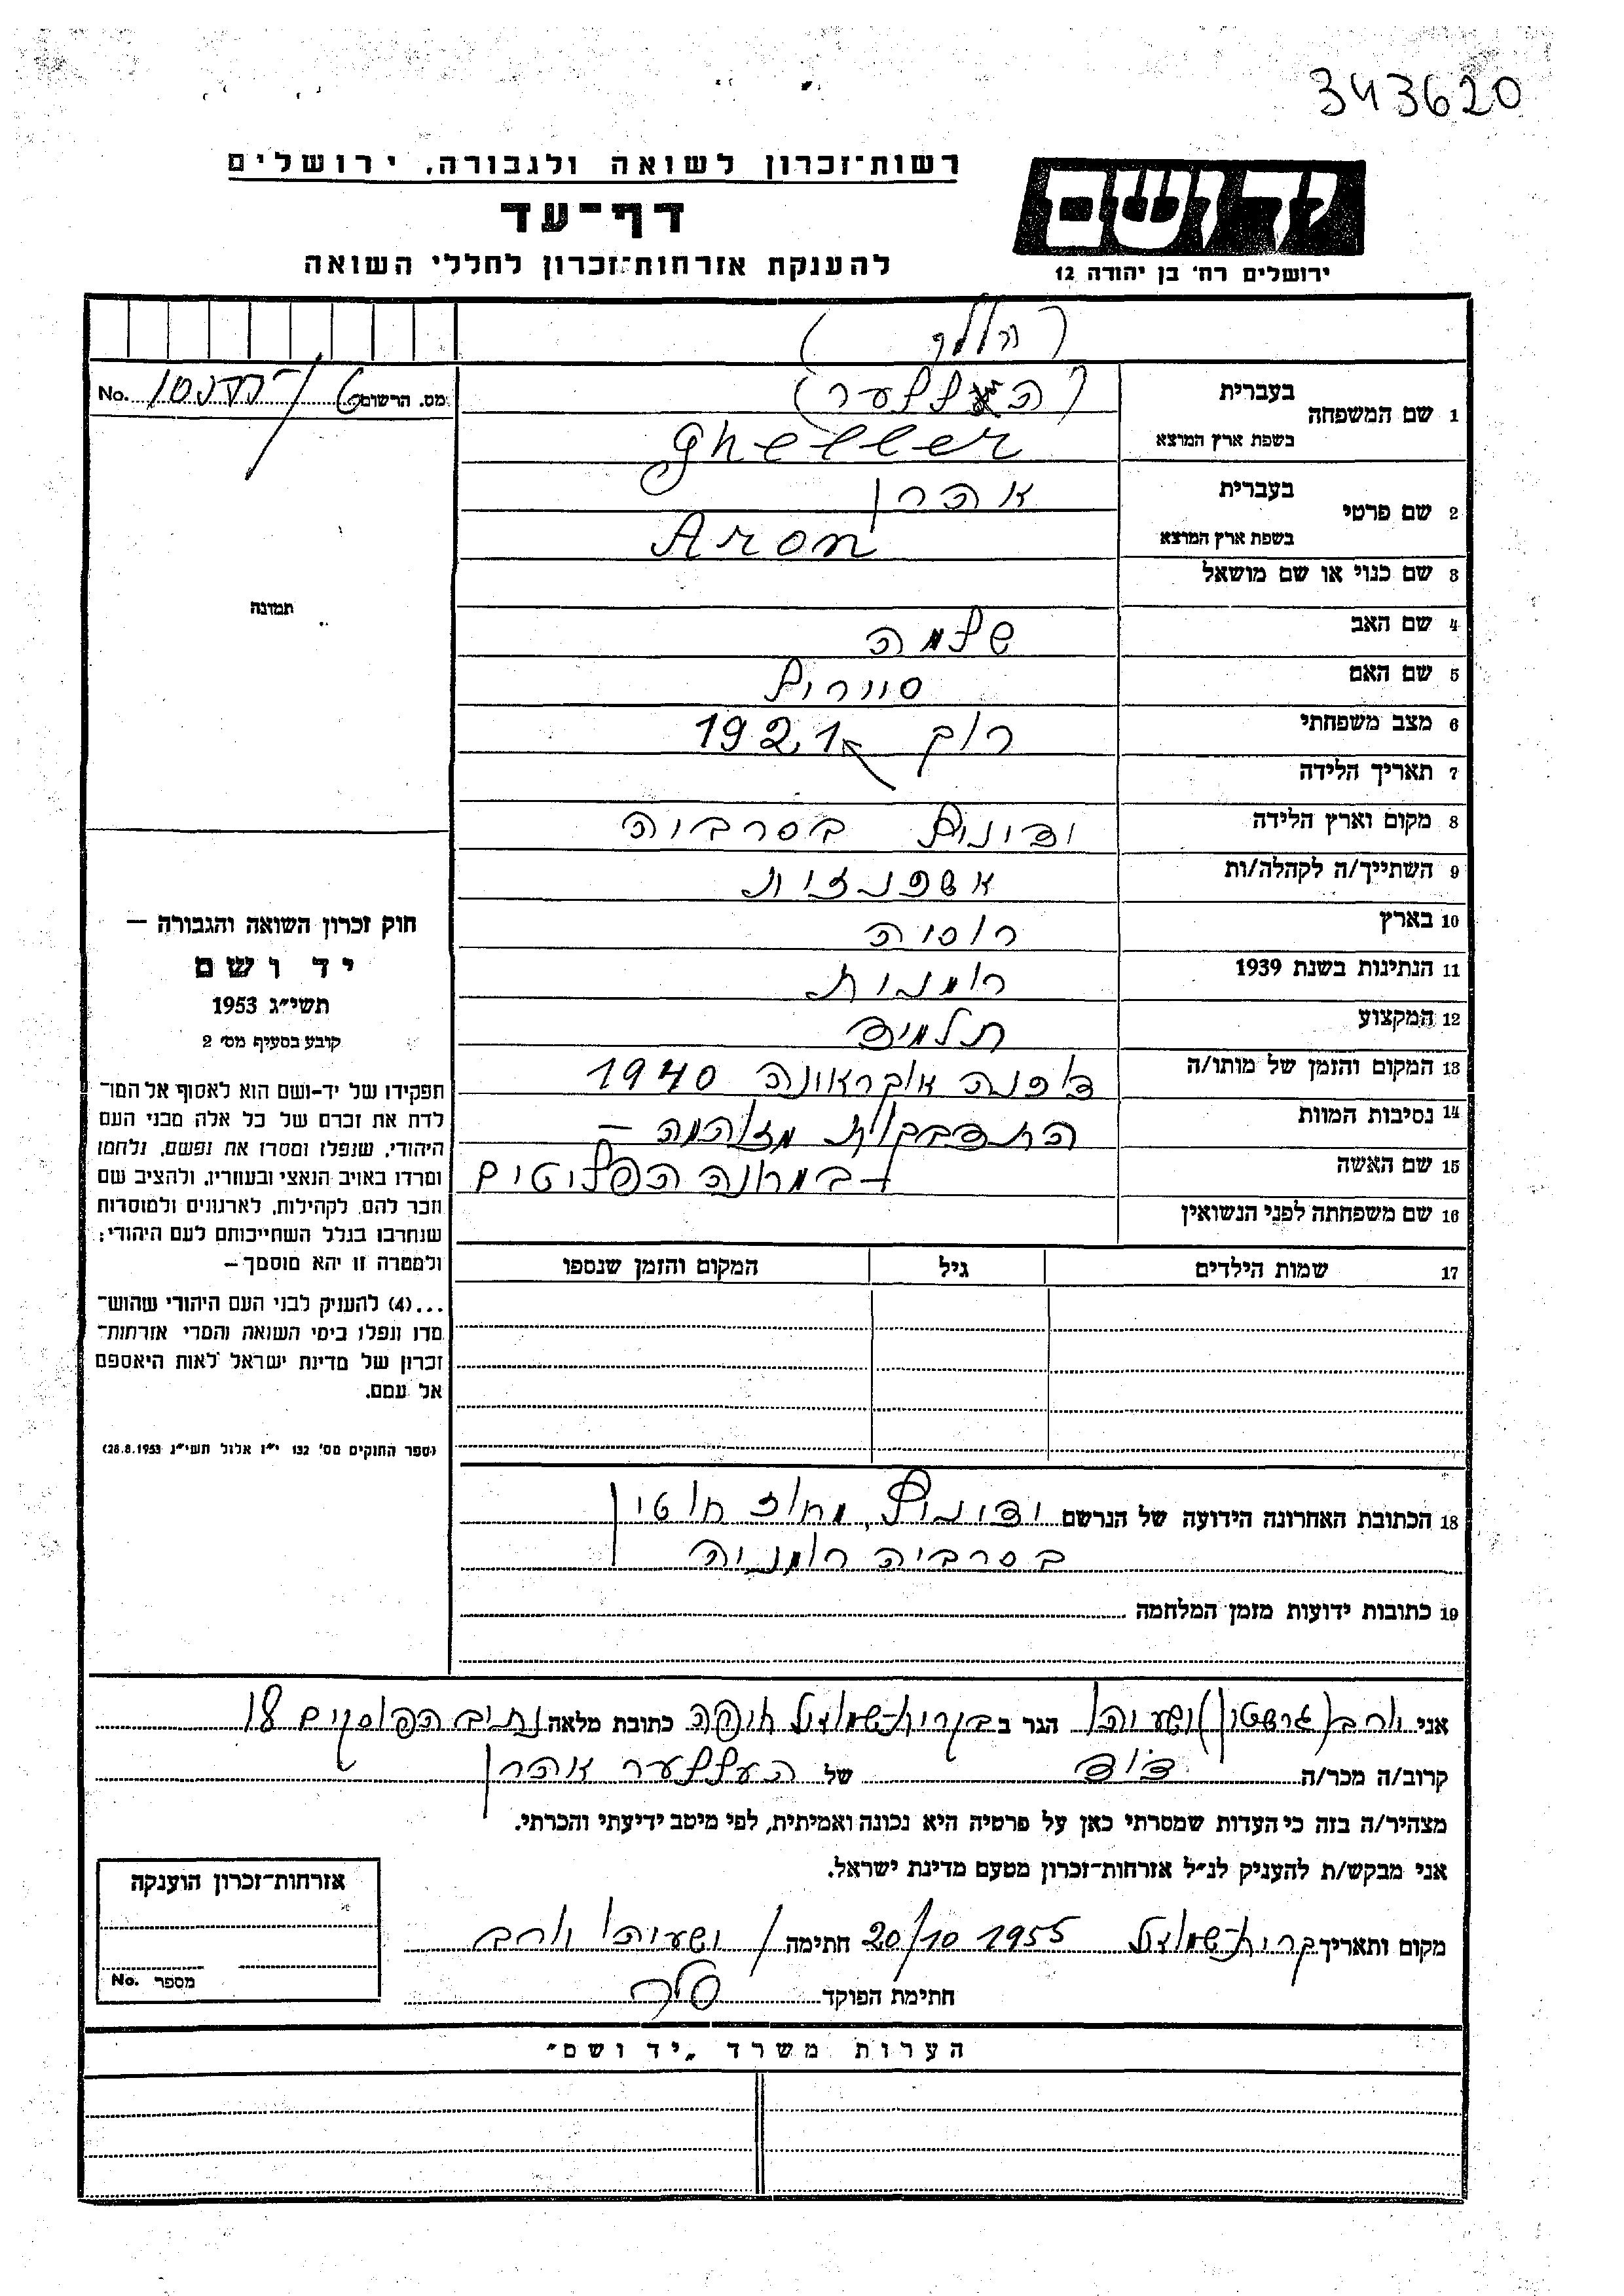 343620
רשות־זכרון לשואה ולגבורה, ירושלים
דף־עד
להענקת אזרחות־זכרון לחללי השואה
יד ושם
ירושלים רח' בן יהודה 12
מס. הרשום No.
1 שם המשפחה בעברית (העללער)
בשפת ארץ המוצא gheller
2 שם פרטי בעברית אהרן
בשפת ארץ המוצא Aron
3 שם כנוי או שם מושאל
4 שם האב שלמה
5 שם האם
6 מצב משפחתי רוק 1921
7 תאריך הלידה
8 מקום וארץ הלידה בסרביה
9 השתייך/ה לקהלה/ות אשכנזית
10 בארץ רוסיה
11 הנתינות בשנת 1939 רומנית
12 המקצוע תלמיד
13 המקום והזמן של מותו/ה אוקראינה 1940
14 נסיבות המוות התדבקות
15 שם האשה הפליטים
16 שם משפחתה לפני הנשואין
17 שמות הילדים גיל המקום והזמן שנספו
תמונה
חוק זכרון השואה והגבורה –
יד ושם
תשי״ג 1953
קובע בסעיף מס׳ 2
תפקידו של יד־ושם הוא לאסוף אל המו־
לדת את זכרם של כל אלה מבני העם
היהודי, שנפלו ומסרו את נפשם, נלחמו
ומרדו באויב הנאצי ובעוזריו, ולהציב שם
וזכר להם, לקהילות, לארגונים ולמוסדות
שנחרבו בגלל השתייכותם לעם היהודי;
ולמטרה זו יהא מוסמך –
...(4) להעניק לבני העם היהודי שהוש־
מדו ונפלו בימי השואה והמרי אזרחות־
זכרון של מדינת ישראל לאות היאספם
אל עמם.
(ספר החוקים מס׳ 132 י״ז אלול תשי״ג 28.8.1953)
18 הכתובת האחרונה הידועה של הנרשם מחוז חוטין
בסרביה רומניה
19 כתובות ידועות מזמן המלחמה
אני ישעיהו הגר ב בקרית־שמואל חיפה כתובת מלאה נתיב הפוסקים 18
קרוב/ה מכר/ה דוד של העללער אהרן
מצהיר/ה בזה כי העדות שמסרתי כאן על פרטיה היא נכונה ואמיתית, לפי מיטב ידיעתי והכרתי.
אני מבקש/ת להעניק לנ״ל אזרחות־זכרון מטעם מדינת ישראל.
מקום ותאריך קרית־שמואל 20/10 1955 חתימה ישעיהו
חתימת הפוקד
אזרחות־זכרון הוענקה
מספר No.
הערות משרד „יד ושם״